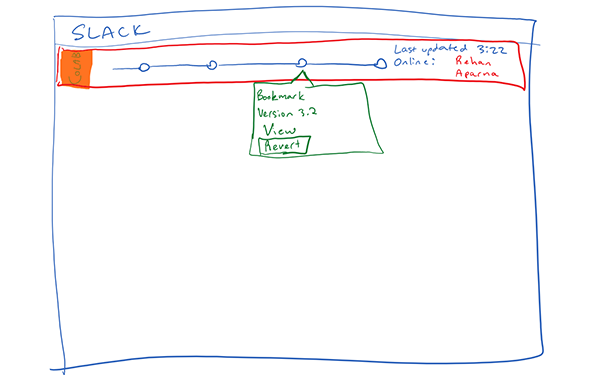 SLACK
COLAB
Last updated 3:22
Online: Rehan
Aparna
Bookmark
Version 3.2
View
Revert